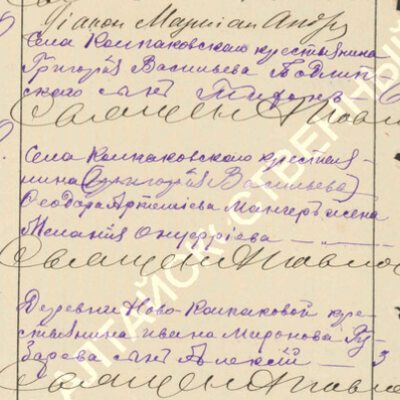 Диакон Мартиан Андр
Села Колпаковскаго крестьянина
Григорія Васильева Подлип-
скаго сынъ Тихонъ —
Священ Павло
Села Колпаковскаго крестья-
нина (Григорія Васильева)
Ѳеодора Артеміева Мангеръ жена
Меланія Онуфріева —
Священ Павлов
Деревни Ново-Колпаковой кре-
стьянина Ивана Миронова Гу-
барева сынъ Алексій — 3
Священ Павло
АЛТАЙСК СТВЕННЫЙ